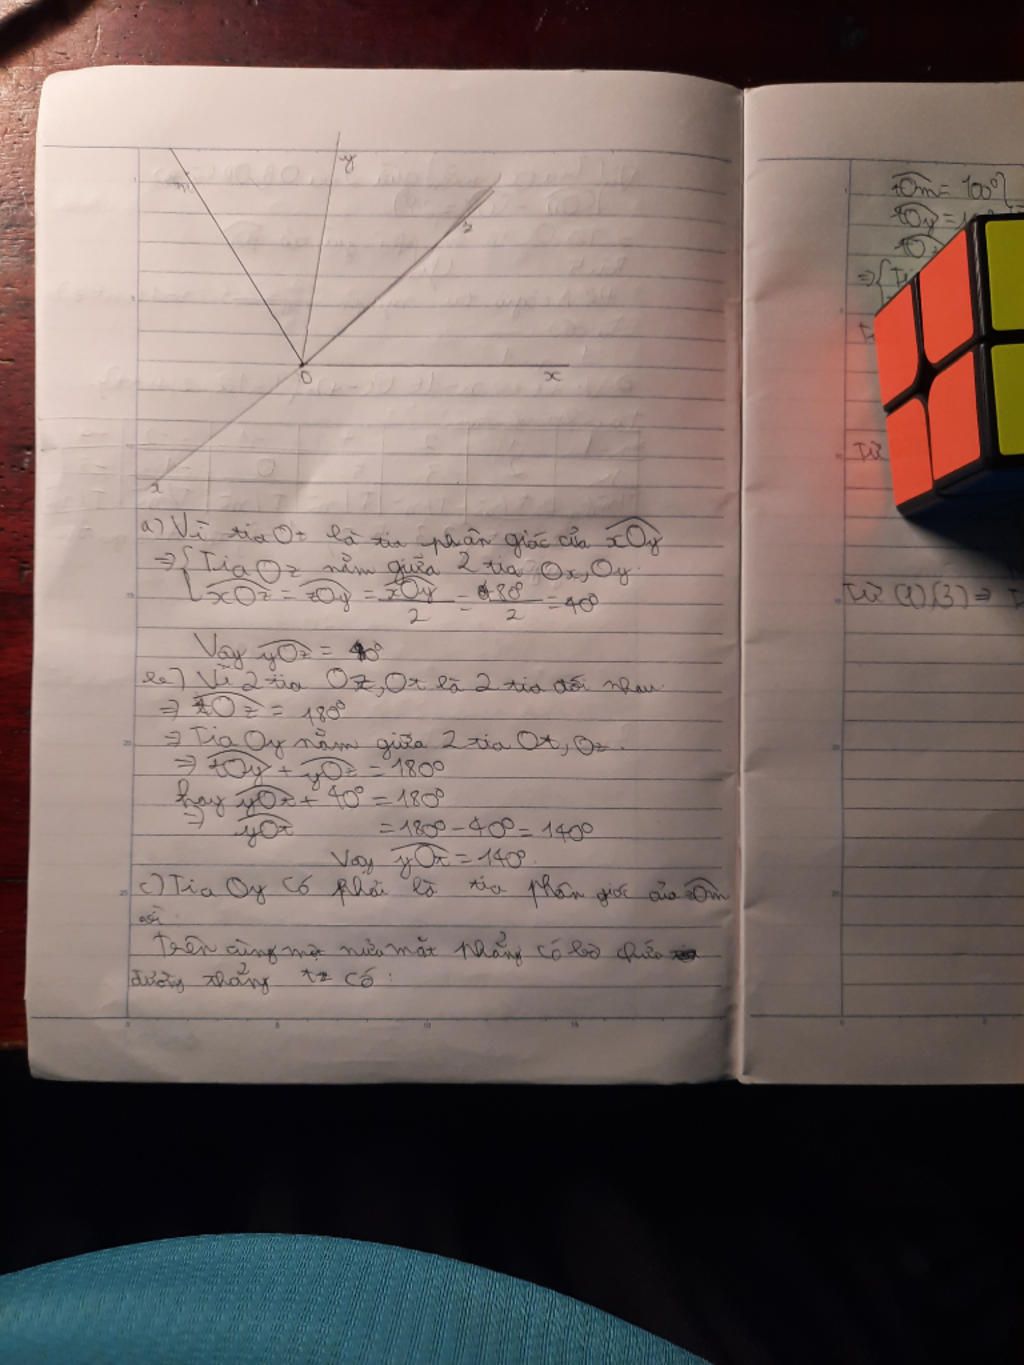 m
y
z
O
x
t
a) Vì tia Ot là tia phân giác của xOy
=> { Tia Oz nằm giữa 2 tia Ox, Oy.
xOz = zOy = xOy/2 = 80°/2 = 40°
Vậy yOz = 40°
b) Vì 2 tia Oz, Ot là 2 tia đối nhau
=> tOz = 180°
=> Tia Oy nằm giữa 2 tia Ot, Oz.
=> tOy + yOz = 180°
hay yOt + 40° = 180°
=> yOt = 180° - 40° = 140°
Vậy yOt = 140°.
c) Tia Oy có phải là tia phân giác của zOm
Trên cùng một nửa mặt phẳng có bờ chứa
đường thẳng tz có:
tOm = 100°
tOy =
=> {
Từ
Từ (1)(3) =>